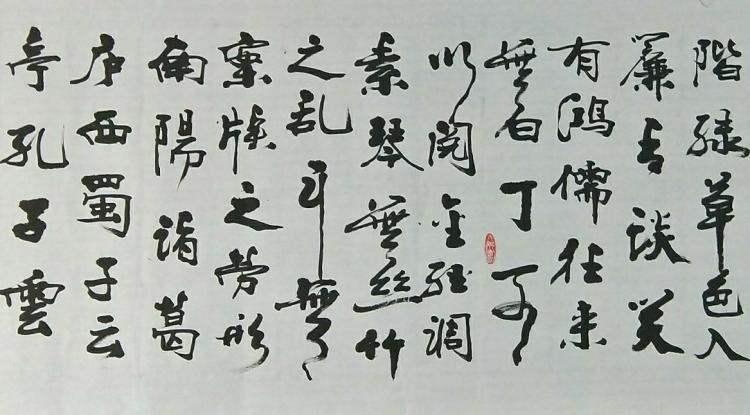 階緑草色入
簾青談笑
有鴻儒往来
無白丁可
以閲金經調
素琴無絲竹
之乱耳無
案牘之勞形
南陽諸葛
庐西蜀子云
亭孔子雲